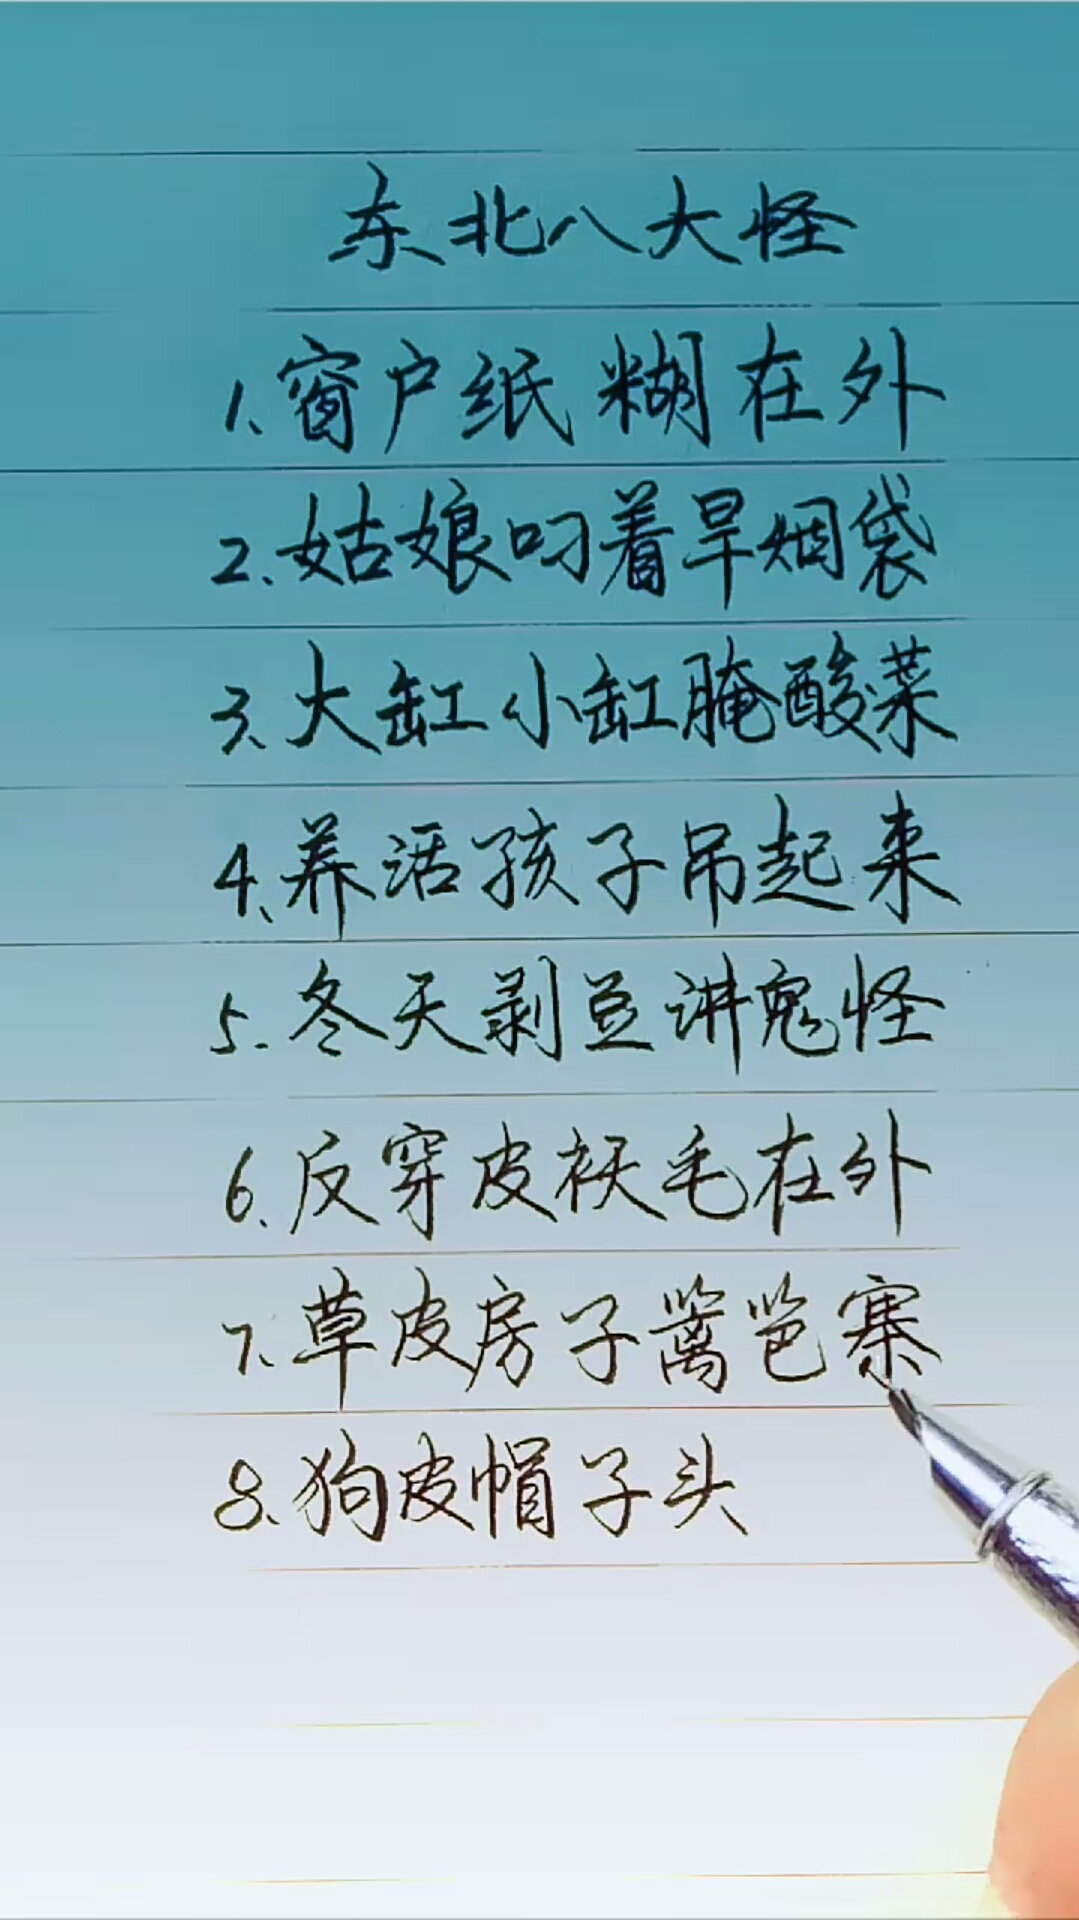 东北八大怪
1、窗户纸糊在外
2、姑娘叼着旱烟袋
3、大缸小缸腌酸菜
4、养活孩子吊起来
5、冬天剥豆讲鬼怪
6、反穿皮袄毛在外
7、草皮房子篱笆寨
8、狗皮帽子头